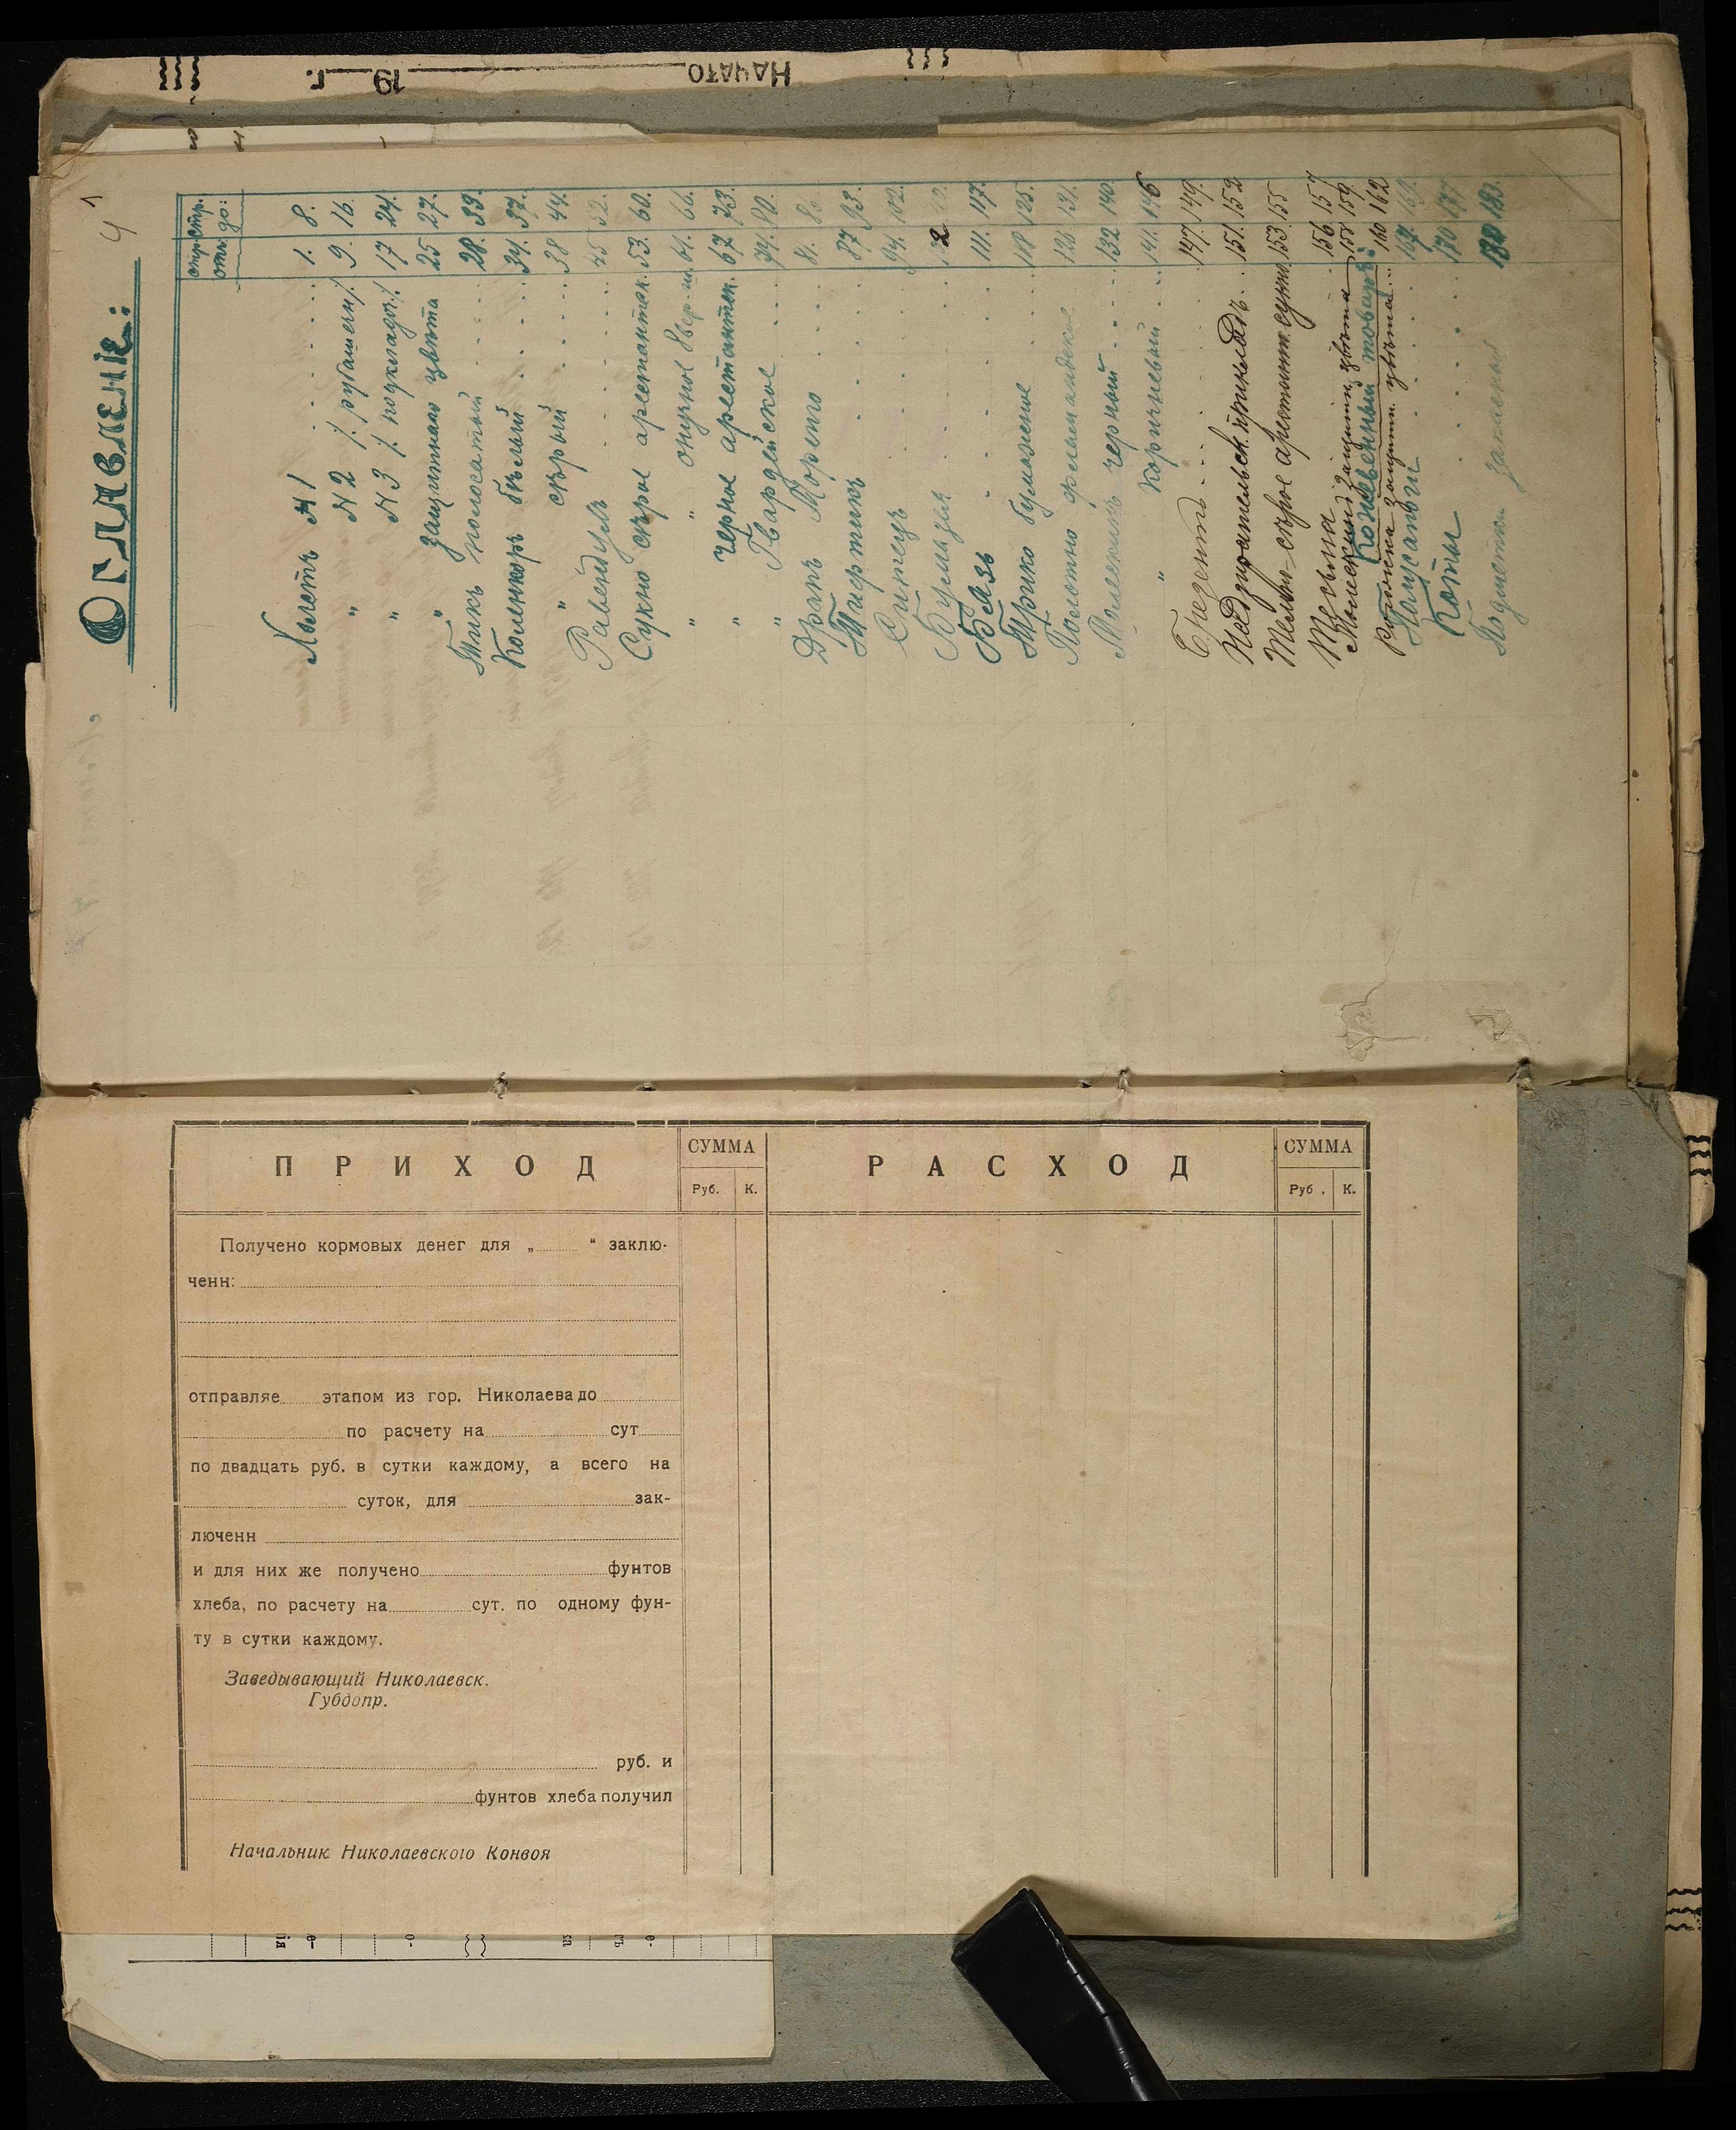 НАЧАТО 19 г.
4
Оглавленіе:
стр. от: стр. до:
Холстъ № 1 . . . . 1. 8.
" № 2 /. рубашечн./. 9. 16.
" № 3 /. подкладоч./. 17 24.
" защитнаго цвѣта 25 27.
Тикъ полосатый . . . 28. 33.
Коленкоръ бѣлый . . . 34. 37.
" сѣрый . . . 38 44.
Равендукъ . . . . 45 52.
Сукно сѣрое арестантск. 53. 60.
" " 61. 66.
" черное арестантск. 67 73.
" Гвардейское . . . 74. 80.
Драпъ Торнто . . . 81. 86
. . . 87. 93.
Ситецъ . . . 94. 102.
Бумазея . . .
Бязь . . . 111. 117.
Трико бумажное . . . 118 125.
Полотно фламандское 126 131.
Молескинъ черный . . . 132 140.
" коричневый . . . 141. 146
Брезентъ . . . . 147. 149.
Надзирательск. прикладъ . . 151. 152
сѣрое арестантк. сукно. 153. 155
Тесьма . . 156 157
Молескинъ защитн. цвѣта 158 159.
Кожевенный товаръ:
защитн. цвѣта . . . 160 162
. . . 169.
Коты . . . 170 177.
183.
П Р И Х О Д
СУММА
Руб. К.
Р А С Х О Д
СУММА
Руб. К.
Получено кормовых денег для „ “ заклю-
ченн:
отправляе этапом из гор. Николаева до
по расчету на сут
по двадцать руб. в сутки каждому, а всего на
суток, для зак-
люченн
и для них же получено фунтов
хлеба, по расчету на сут. по одному фун-
ту в сутки каждому.
Заведывающий Николаевск.
Губдопр.
руб. и
фунтов хлеба получил
Начальник Николаевского Конвоя